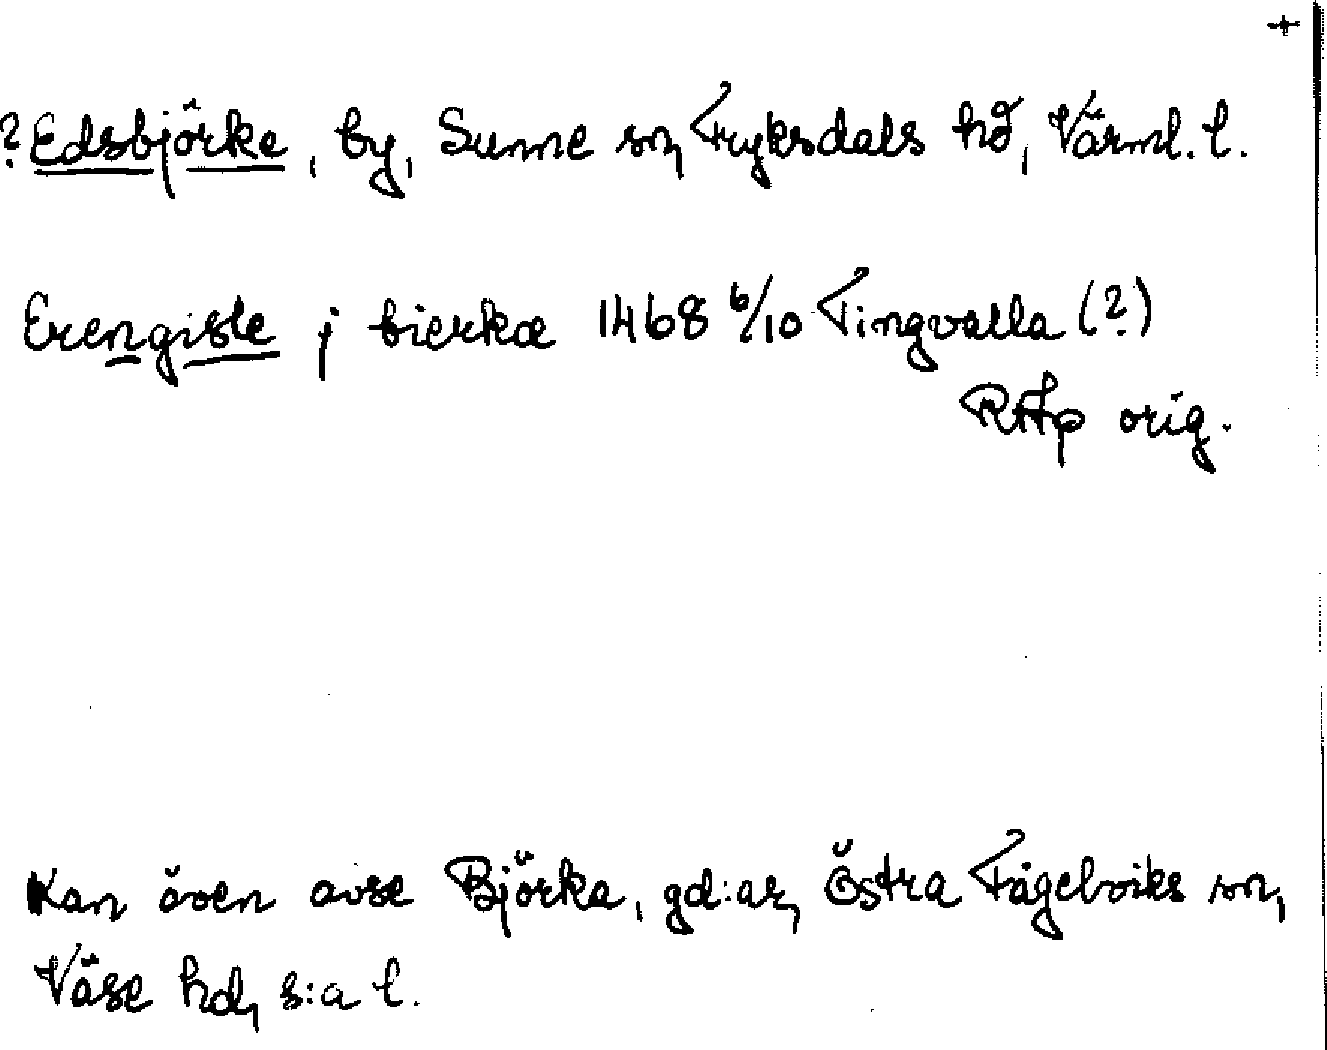 +
? Edsbjörke, by, Sunne sn, Fryksdals hd, Värml. l.
Erengisle j bierka 1468 6/10 Tingvalla (?)
RAp orig.
Kan även avse Björka, gd:ar, Östra Fågelviks sn,
Väse hd, s:a l.